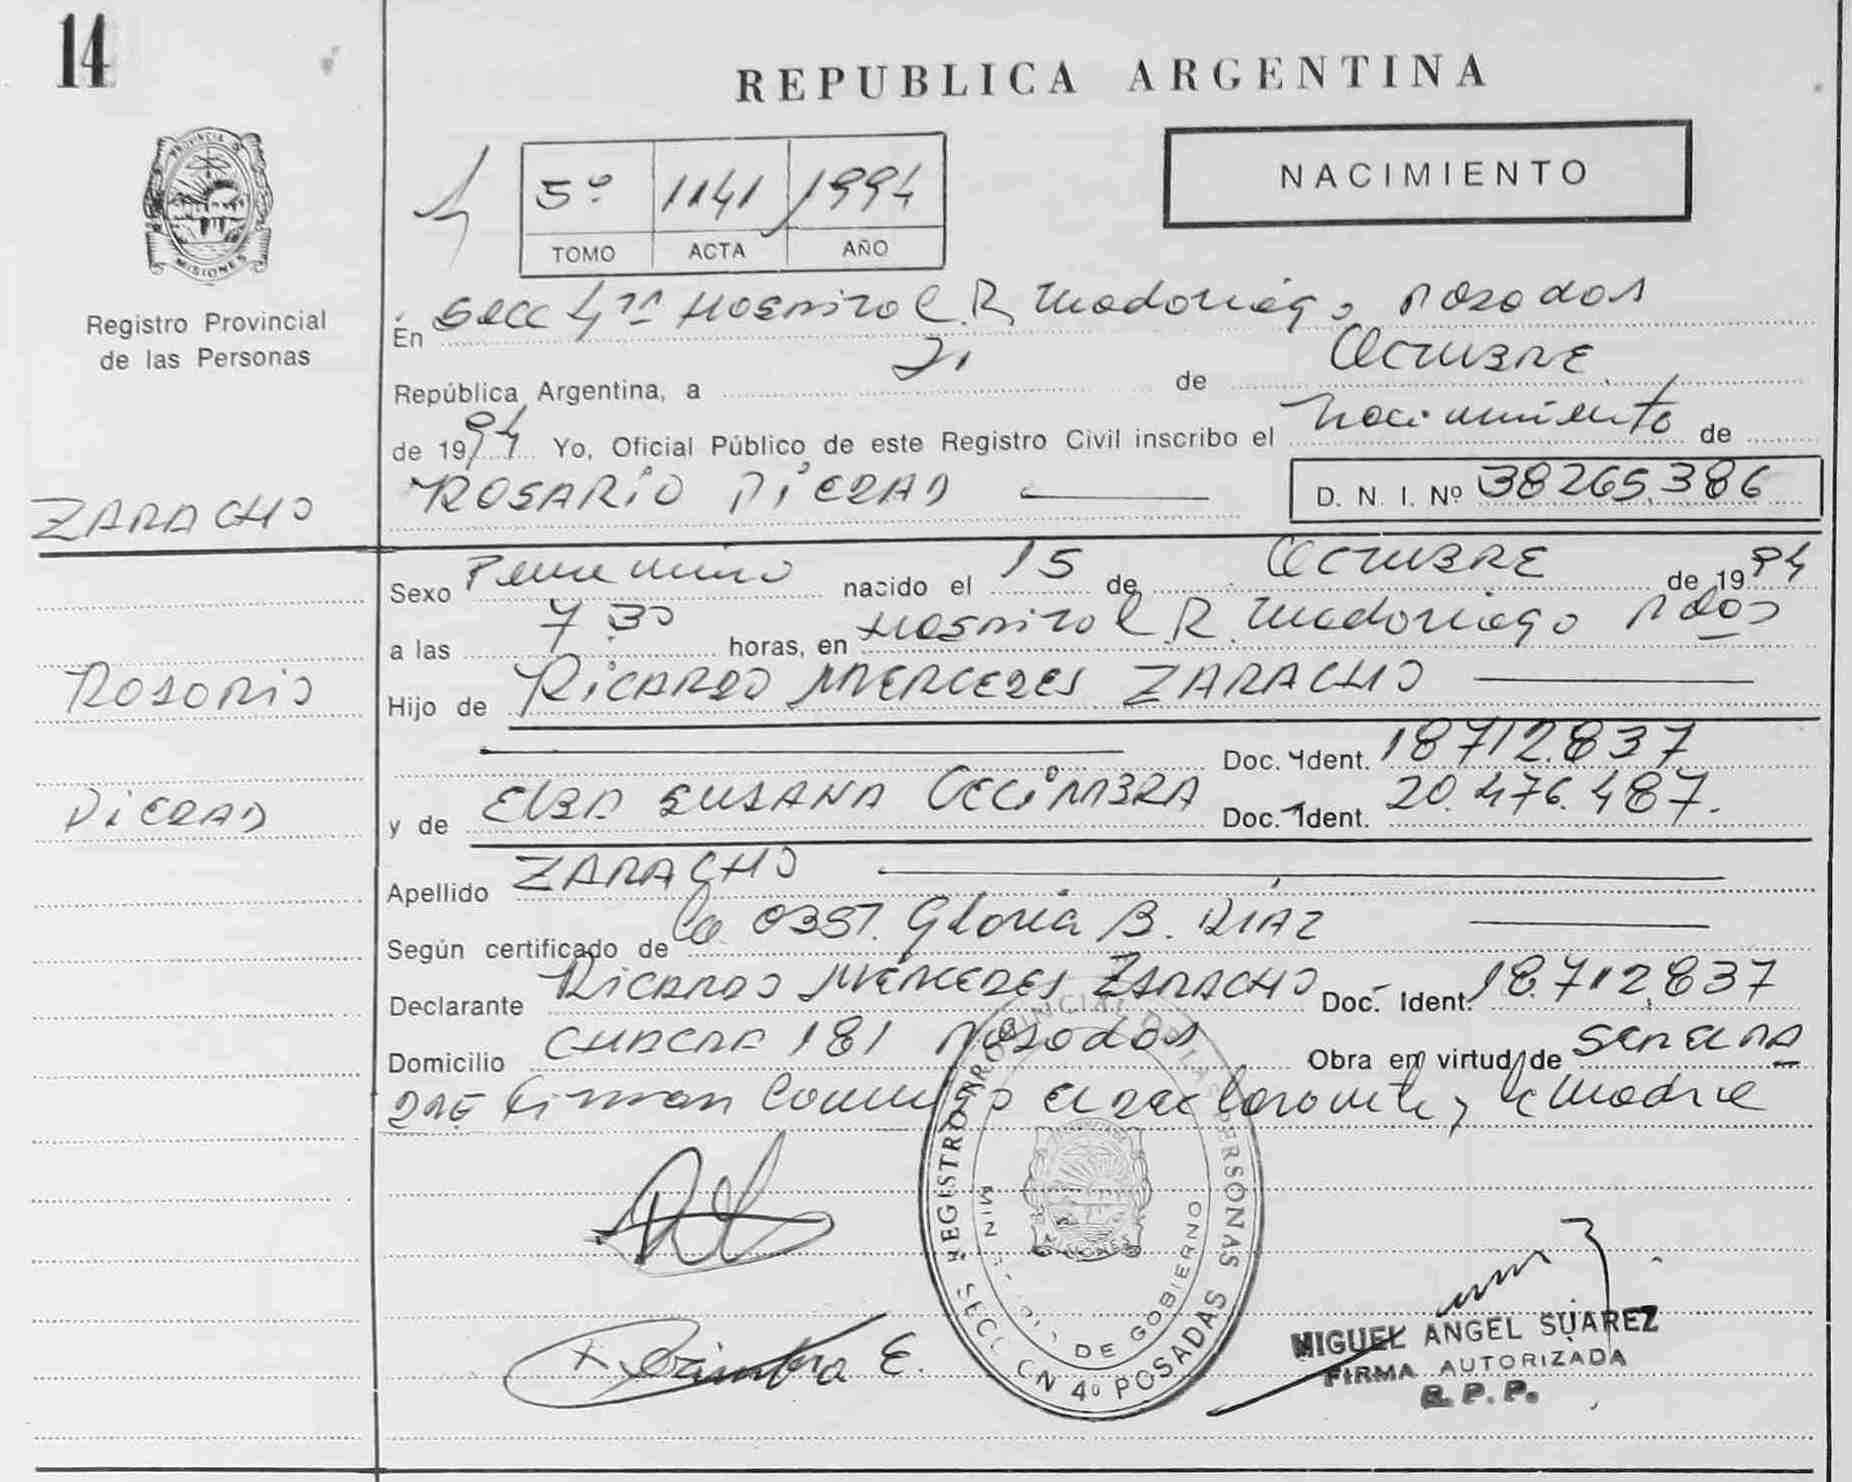 14
REPUBLICA ARGENTINA
NACIMIENTO
5º 1141 1994
TOMO ACTA AÑO
PROVINCIA DE MISIONES
Registro Provincial
de las Personas
En Secc 4ta Hospital R. Madariaga Posadas
República Argentina, a 21 de Octubre
de 1994 Yo, Oficial Público de este Registro Civil inscribo el nacimiento de
ROSARIO PIEDAD D. N. I. Nº 38265.386
ZARACHO
Rosario
PIEDAD
Sexo Femenino nacido el 15 de Octubre de 1994
a las 7 30 horas, en Hospital R. Madariaga Pdas
Hijo de RICARDO MERCEDES ZARACHO
Doc. Ident. 18712.837
y de ELBA SUSANA CECIMBRA Doc. Ident. 20.476.487.
Apellido ZARACHO
Según certificado de la OBST. Gloria B. DIAZ
Declarante RICARDO MERCEDES ZARACHO Doc. Ident. 18.712,837
Domicilio CHACRA 181 Posadas Obra en virtud de
firman conmigo el declarante y la madre
REGISTRO PROVINCIAL DE LAS PERSONAS
SECCION 4º POSADAS
DE GOBIERNO
E.
MIGUEL ANGEL SUAREZ
FIRMA AUTORIZADA
R. P. P.